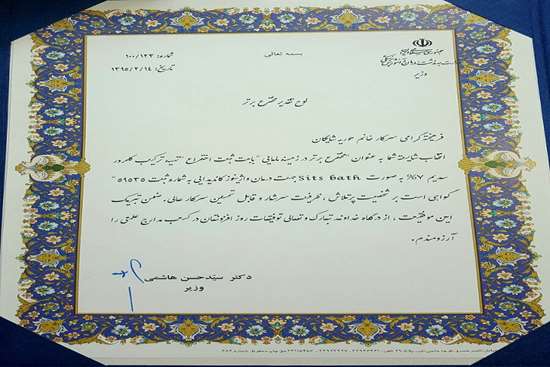 بسمه تعالی
شماره: ۱۰۰/۱۲۳
تاریخ: ۱۳۹۵/۲/۱۴
جمهوری اسلامی ایران
وزارت بهداشت، درمان و آموزش پزشکی
وزیر
لوح تقدیر مخترع برتر
فرهیخته گرامی سرکار خانم حوریه شایگان
انتخاب شایسته شما به عنوان "مخترع برتر در زمینه مامایی" بابت ثبت اختراع "تهیه ترکیب کلرور
سدیم ۷% به صورت Sits Bath جهت درمان واژینوز کاندیدایی به شماره ثبت ۵۱۵۳۵"
گواهی است بر شخصیت پرتلاش، ظرفیت سرشار و قابل تحسین سرکار عالی. ضمن تبریک
این موفقیت، از درگاه خداوند تبارک و تعالی توفیقات روز افزونتان در کسب مدارج علمی را
آرزومندم.
دکتر سیّد حسن هاشمی
وزیر